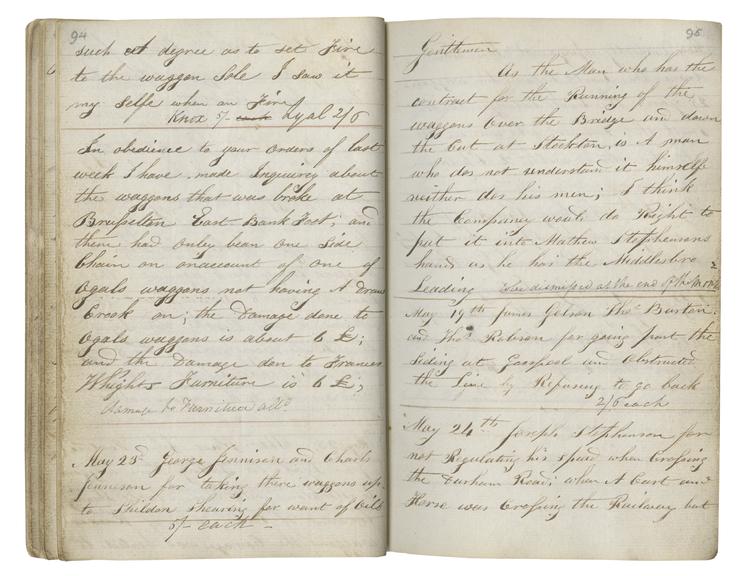 94
such A degree as to set Fire
to the waggon Sole I saw it
my selfe when on Fire
Knox 5/- Lyal 2/6
In obedience to your orders of last
week I have made Inquirey about
the waggons that was broke at
Brusselton East Bank Foot; and
there had only bean one Side
Chain on onaccount of one of
Ogals waggons not having A Draw
Crook on; the Damage done to
Ogals waggons is about 6 £;
and the Damage don to Frances
Whights Furniture is 6 £;
Damage to Furniture all
May 23d George Jennison and Charls
Jennison for taking three waggons up
to Shildon Shearing for want of Oile
5/- each
95
Gentlemen
As the Man who has the
contract for the Running of the
waggons over the Bridge and down
the Cut at Stockton, is A man
who dos not understand it himself
neither dos his men; I think
the Company would do Right to
put it into Mathew Stephensons
hands as he has the Middlesbro
Leading To be dismissed at the end of the Month
May 19th James Gibson Thos Burton
and Thos Robson for going past the
Siding at Goospool and Obstructed
the Line by Refusing to go back
2/6 each
May 24th Joseph Stephenson for
not Regulating his Spead when Crossing
the Durham Road; when A Cart and
Horse was Crossing the Railway but